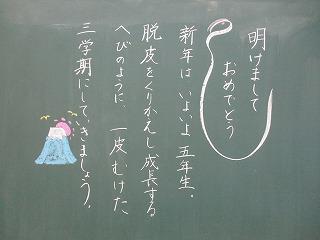 明けまして
おめでとう
新年は いよいよ 五年生。
脱皮をくりかえし成長する
へびのように、一皮むけた
三学期にしていきましょう。